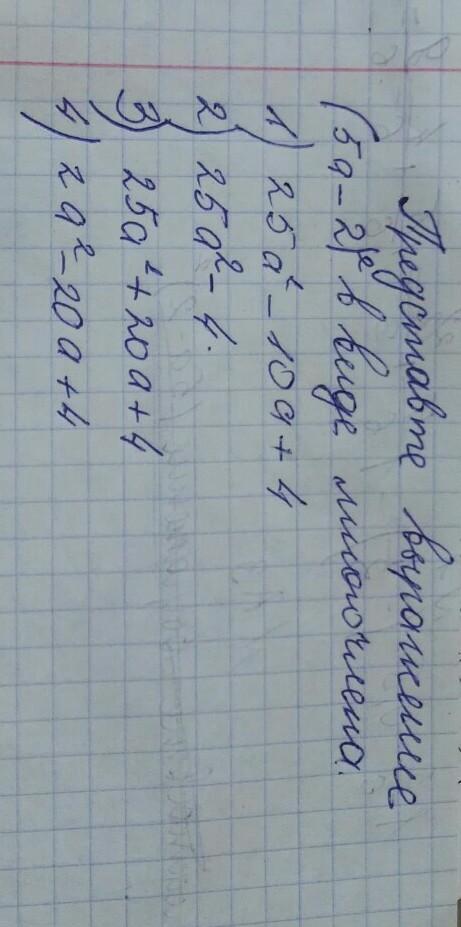 Представте выражение
(5a-2)² в виде многочлена.
1) 25a² - 10a + 4
2) 25a² - 4.
3) 25a² + 20a + 4
4) 2a² - 20a + 4